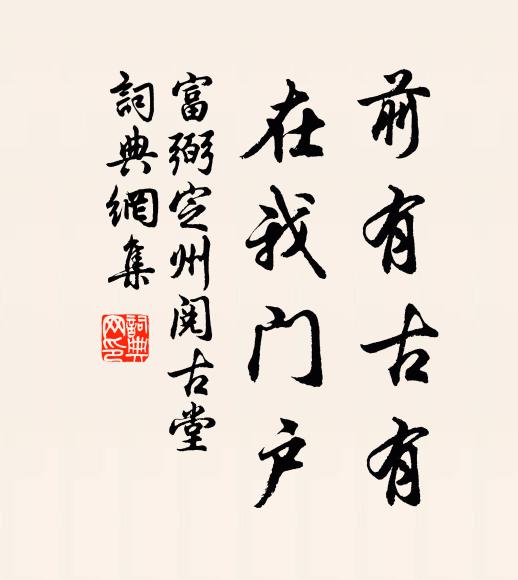 前有古有
在我门户
富弼定州阅古堂
詞典網集
詞典网印